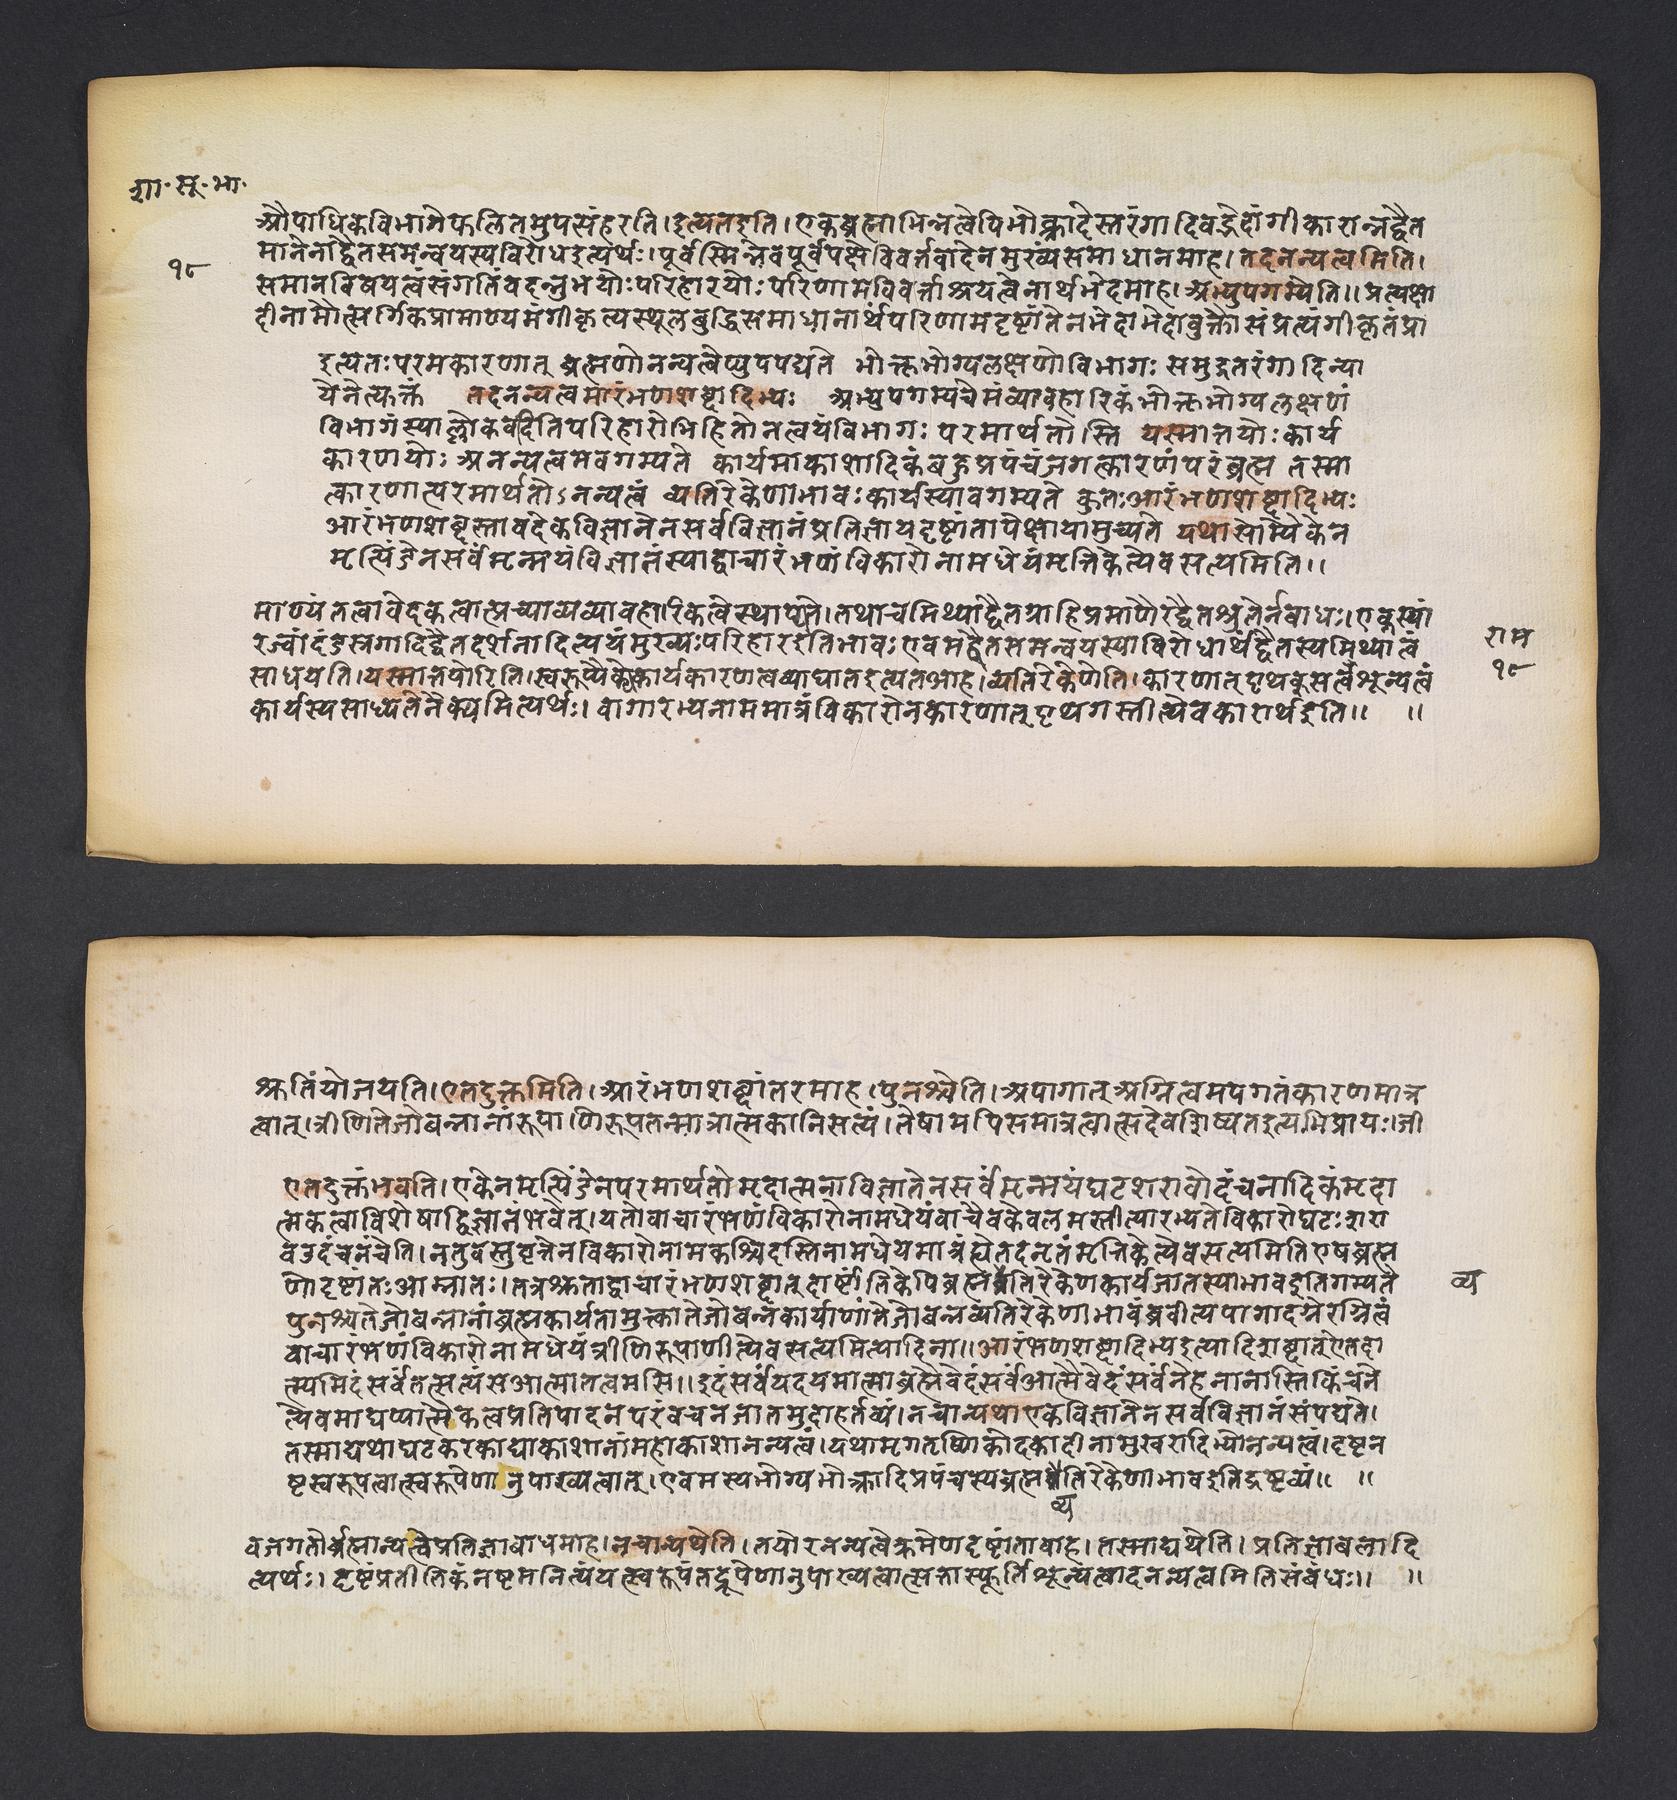 शा. सू. भा.
१८
औपाधिकेविभागेफलितमुपसंहरति।इत्यतइति।एकब्रह्माभिन्नत्वेपिभोक्त्रादेस्तरंगादिवद्भेदांगीकारान्नद्वैत
मानेनाद्वैतसमन्वयस्यविरोधइत्यर्थः।पूर्वस्मिन्नेवपूर्वपक्षेविवर्तवादेनमुख्यंसमाधानमाह।तदनन्यत्वमिति।
समानविषयत्वंसंगतिंवदन्नुभयोःपरिहारयोःपरिणामविवर्त्ताश्रयत्वेनार्थभेदमाह।अभ्युपगम्येति॥प्रत्यक्षा
दीनामौत्सर्गिकप्रामाण्यमंगीकृत्यस्थूलबुद्धिसमाधानार्थंपरिणामदृष्टांतेनभेदाभेदावुक्तौसंप्रत्यंगीकृतंप्रा
इत्यतःपरमकारणात् ब्रह्मणोनन्यत्वेप्युपपद्यते भोक्तृभोग्यलक्षणोविभागः समुद्रतरंगादिन्या
येनेत्युक्तं तदनन्यत्वमारंभणशब्दादिभ्यः अभ्युपगम्यचेमंव्यावहारिकं भोक्तृभोग्यलक्षणं
विभागंस्याल्लोकवदितिपरिहारोभिहितोनत्वयंविभागः परमार्थतोस्ति यस्मात्तयोःकार्य
कारणयोः अनन्यत्वमवगम्यते कार्यमाकाशादिकंबहुप्रपंचंजगत्कारणंपरंब्रह्म तस्मा
त्कारणात्परमार्थतोऽनन्यत्वं व्यतिरेकेणाभावःकार्यस्यावगम्यते कुतःआरंभणशब्दादिभ्यः
आरंभणशब्दस्तावदेकविज्ञानेनसर्वविज्ञानंप्रतिज्ञायदृष्टांतापेक्षायामुच्यते यथासोम्यैकेन
मृत्पिंडेनसर्वंमृन्मयंविज्ञातंस्याद्वाचारंभणंविकारोनामधेयंमृत्तिकेत्येवसत्यमिति॥
माण्यंतत्वावेदकत्वात्प्रच्याव्यव्यावहारिकत्वेस्थाप्यते।तथाचमिथ्याद्वैतग्राहिप्रमाणैरद्वैतश्रुतेर्नबाधः।एकस्यां
रज्वांदंडस्रगादिद्वैतदर्शनादित्ययंमुख्यःपरिहारइतिभावःएवमद्वैतसमन्वयस्याविरोधार्थंद्वैतस्यमिथ्यात्वं
साधयति।यस्मात्तयोरिति।स्वरूप्यैक्येकार्यकारणत्वव्याघातइत्यतआह।व्यतिरेकेणेति।कारणात्पृथक्सत्वशून्यत्वं
कार्यस्यसाध्यतेनैक्यमित्यर्थः।वागारभ्यनाममात्रंविकारोनकारणात्पृथगस्तीत्येवकारार्थइति॥ ॥
राम
१८
श्रुतिंयोजयति।एतदुक्तमिति।आरंभणशब्दांतरमाह।पुनश्चेति।अपागात् अग्नित्वमपगतंकारणमात्र
त्वात्।त्रीणितेजोबन्नानांरूपाणिरूपतन्मात्रात्मकानिसत्यं।तेषामपिसमात्रत्वात्सदेवशिष्यतइत्यभिप्रायः।जी
एतदुक्तंभवति।एकेनमृत्पिंडेनपरमार्थतोमृदात्मनाविज्ञातेनसर्वंमृन्मयंघटशरावोदंचनादिकंमृदा
त्मकत्वाविशेषाद्विज्ञातंभवेत्।यतोवाचारंभणंविकारोनामधेयंवाचैवकेवलमस्तीत्यारभ्यतेविकारोघटःशरा
वउदंचनंचेति।नतुवस्तुवृत्तेनविकारोनामकश्चिदस्तिनामधेयमात्रंह्येतदनृतंमृत्तिकेत्येवसत्यमितिएषब्रह्म
णोदृष्टांतःआम्नातः।तत्रश्रुताद्वाचारंभणशब्दात्दार्ष्टांतिकेपिब्रह्मव्यतिरेकेणकार्यजातस्याभावइतिगम्यते
व्य
पुनश्चतेजोबन्नानांब्रह्मकार्यतामुत्क्कातेजोबन्नकार्याणांतेजोबन्नव्यतिरेकेणाभावंब्रवीत्यपागादग्नेरग्नित्वं
वाचारंभणंविकारोनामधेयंत्रीणिरूपाणीत्येवसत्यमित्यादिना॥आरंभणशब्दादिभ्यइत्यादिशब्दात्एतदा
त्म्यमिदंसर्वंतत्सत्यंसआत्मातत्वमसि॥इदंसर्वंयदयमात्माब्रह्मैवेदंसर्वंआत्मैवेदंसर्वंनेहनानास्तिकिंचने
त्येवमाद्यप्यात्मैकत्वप्रतिपादनपरंवचनजातमुदाहर्तव्यं।नचान्यथाएकविज्ञानेनसर्वविज्ञानंसंपद्यते।
तस्माद्यथाघटकरकाद्याकाशानांमहाकाशानन्यत्वं।यथामृगतृष्णिकोदकादीनामुखरादिभ्योनन्यत्वं।दृष्टन
ष्टस्वरूपत्वात्स्वरूपेणानुपाख्यत्वात्।एवमस्यभोग्यभोक्त्रादिप्रपंचस्यब्रह्मव्यतिरेकेणाभावइतिद्रष्टव्यं॥ ॥
व्य
वजगतोर्ब्रह्मान्यत्वेप्रतिज्ञाबाधमाह।नचान्यथेति।तयोरनन्यत्वेक्रमेणदृष्टांतावाह।तस्माद्यथेति। प्रतिज्ञाबलादि
त्यर्थः। दृष्टंप्रतीतिकंनष्टमनित्यंयत्स्वरूपंतद्रूपेणानुपाख्यत्वात्सत्तास्फूर्तिशून्यत्वादनन्यत्वमितिसंबंधः॥ ॥